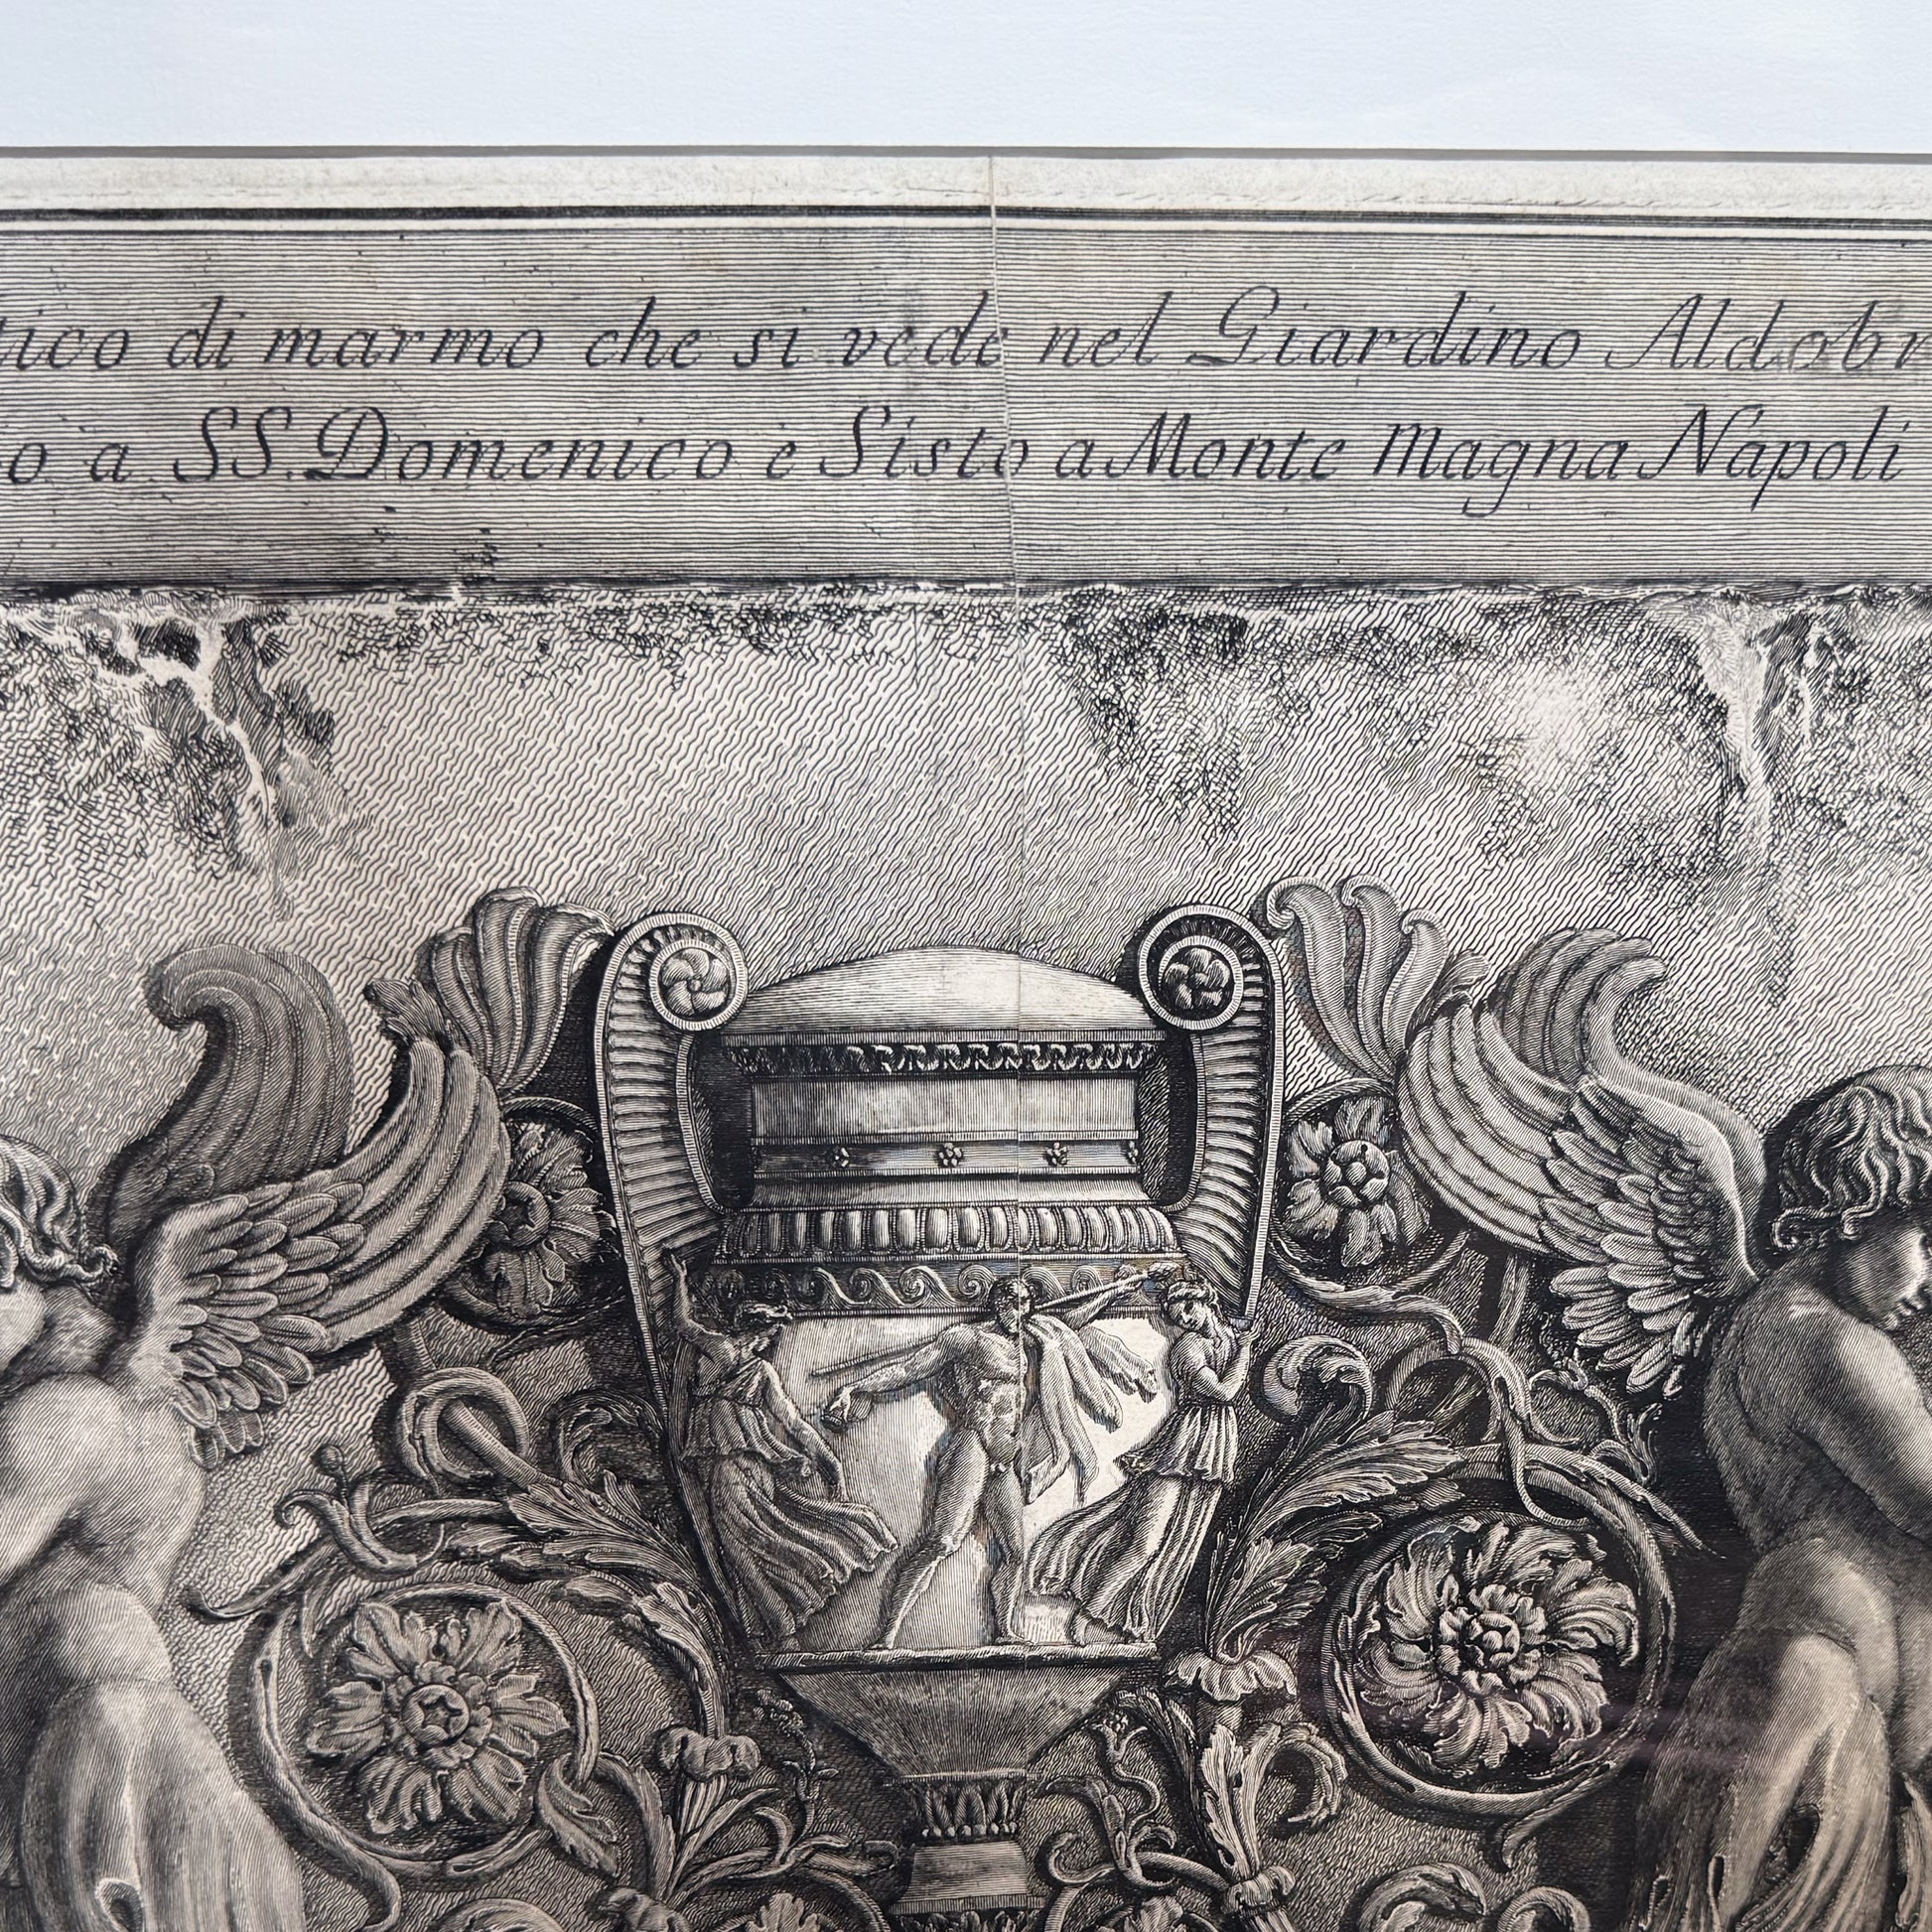 tico di marmo che si vede nel Giardino Aldobr
o a SS. Domenico e Sisto a Monte Magna Napoli